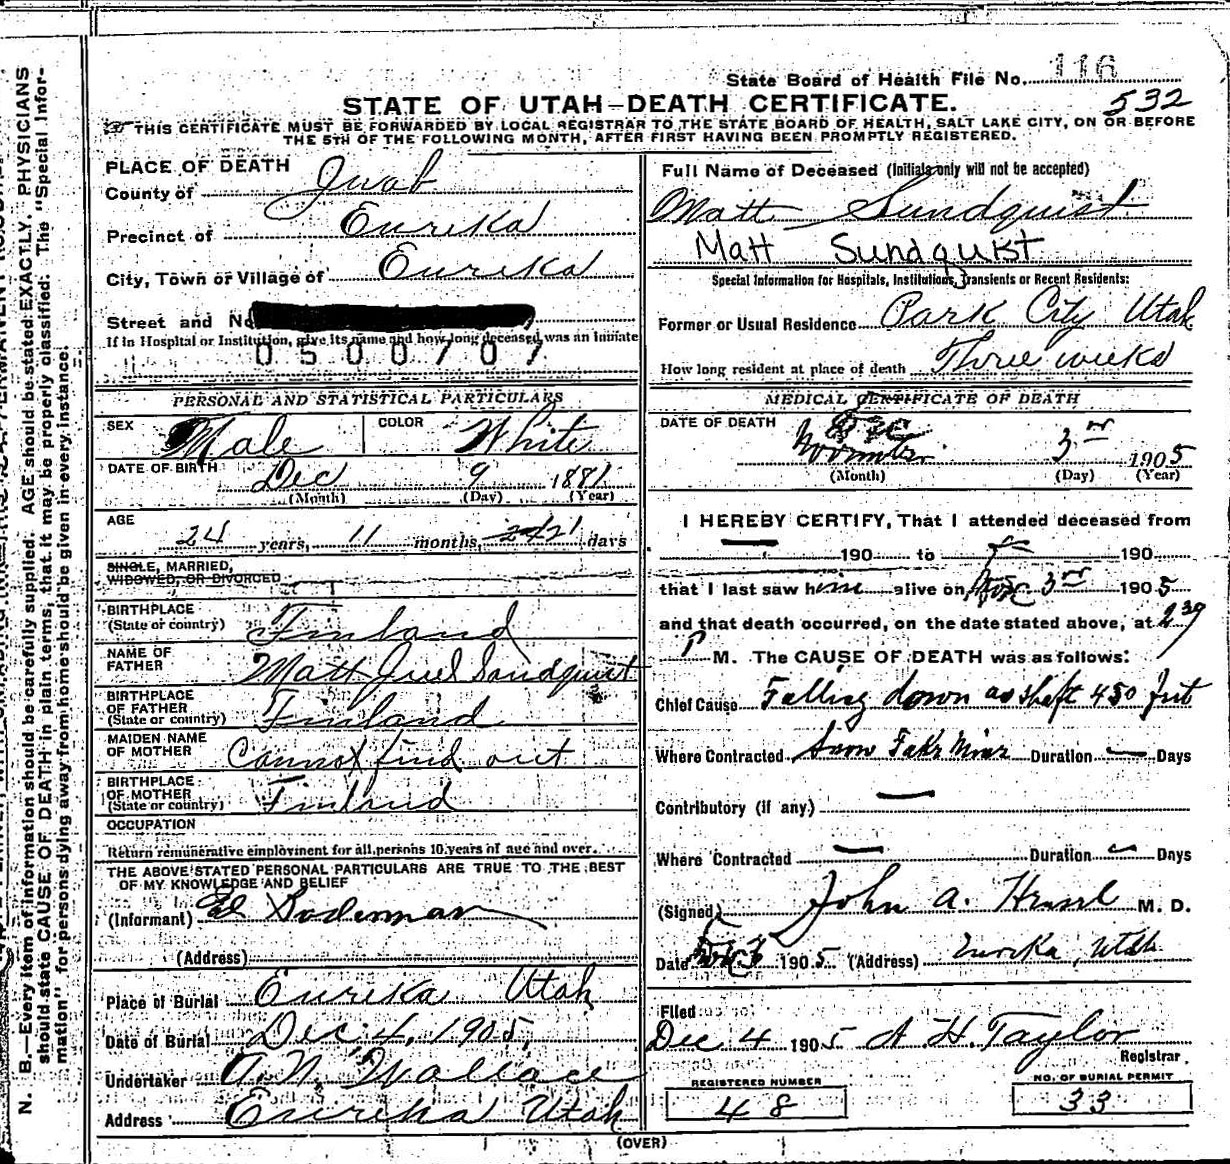 State Board of Health File No. 116
532
STATE OF UTAH—DEATH CERTIFICATE.
THIS CERTIFICATE MUST BE FORWARDED BY LOCAL REGISTRAR TO THE STATE BOARD OF HEALTH, SALT LAKE CITY, ON OR BEFORE
THE 5TH OF THE FOLLOWING MONTH, AFTER FIRST HAVING BEEN PROMPTLY REGISTERED.
PLACE OF DEATH
County of Juab
Precinct of Eureka
City, Town or Village of Eureka
Street and No
If in Hospital or Institution, give its name and how long deceased was an inmate
0500707
PERSONAL AND STATISTICAL PARTICULARS
SEX Male COLOR White
DATE OF BIRTH Dec 9 1881
(Month) (Day) (Year)
AGE
24 years, 11 months, 21 days
SINGLE, MARRIED,
WIDOWED, OR DIVORCED
BIRTHPLACE
(State or country) Finland
NAME OF
FATHER Matt Sundquist
BIRTHPLACE
OF FATHER
(State or country) Finland
MAIDEN NAME
OF MOTHER Cannot find out
BIRTHPLACE
OF MOTHER
(State or country) Finland
OCCUPATION
Return remunerative employment for all persons 10 years of age and over.
THE ABOVE STATED PERSONAL PARTICULARS ARE TRUE TO THE BEST
OF MY KNOWLEDGE AND BELIEF
(Informant) Ed Soderman
(Address)
Place of Burial Eureka Utah
Date of Burial Dec. 4, 1905.
Undertaker Wallace
Address Eureka Utah
Full Name of Deceased (Initials only will not be accepted)
Matt Sundquist
Matt Sundquist
Special Information for Hospitals, Institutions, Transients or Recent Residents:
Former or Usual Residence Park City Utah
How long resident at place of death Three weeks
MEDICAL CERTIFICATE OF DEATH
DATE OF DEATH Dec
November 3rd 1905
(Month) (Day) (Year)
I HEREBY CERTIFY, That I attended deceased from
190 to 190
that I last saw him alive on 3rd 1905
and that death occurred, on the date stated above, at 2 39
P M. The CAUSE OF DEATH was as follows:
Chief Cause Falling down a shaft 450 feet
Where Contracted Snow Flake Mine Duration — Days
Contributory (if any.) —
Where Contracted — Duration — Days
(Signed) John A. M. D.
Date 3 1905 (Address) Eureka, Utah
Filed
Dec 4 1905 A H. Taylor
Registrar.
REGISTERED NUMBER
48
NO. OF BURIAL PERMIT
33
(OVER)
N. B.—Every item of information should be carefully supplied. AGE should be stated EXACTLY. PHYSICIANS
should state CAUSE OF DEATH in plain terms, that it may be properly classified. The "Special Infor-
mation" for persons dying away from home should be given in every instance.